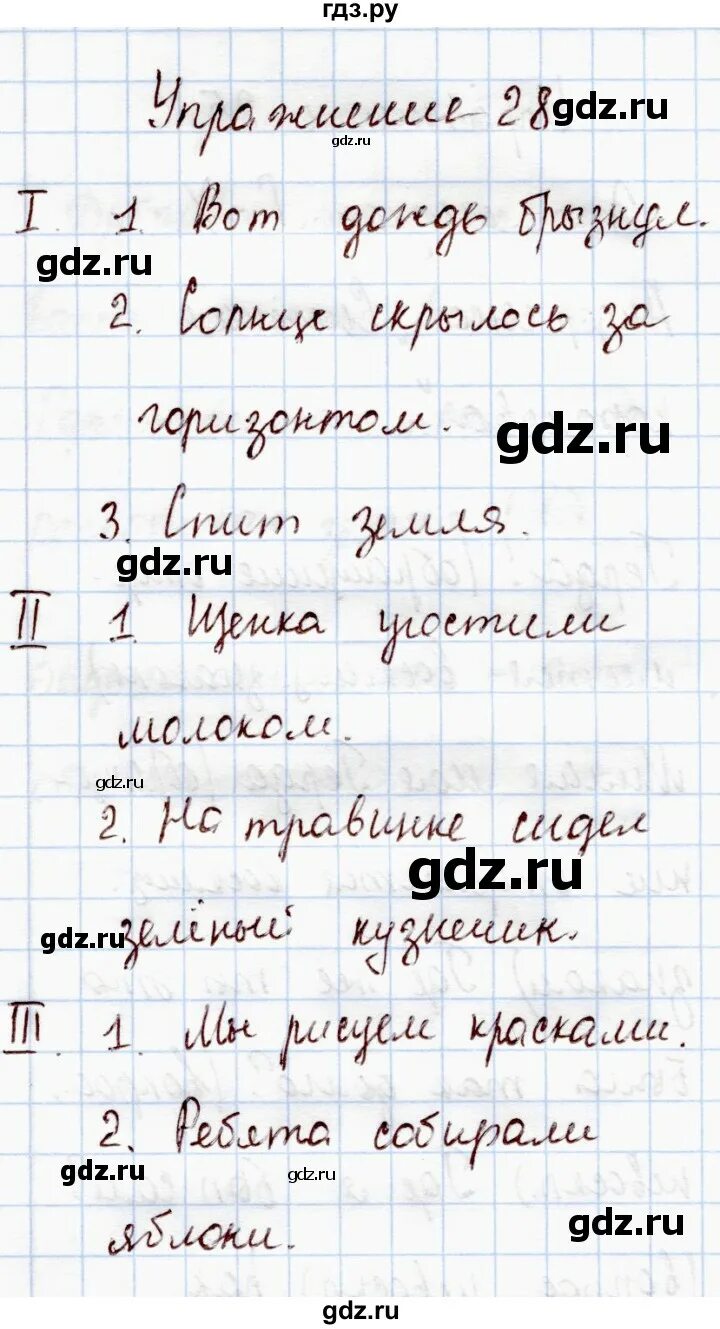 гдз.ру
Упражнение 28 gdz.ru
gdz.ru
I. 1. Вот дождь брызнул.
gdz.ru
2. Солнце скрылось за
горизонтом. gdz.ru
3. Спит земля.
gdz.ru
II 1. Щенка угостили
молоком.
gdz.ru
2. На травинке сидел
gdz.ru
gdz.ru зелёный кузнечик.
III. 1. Мы рисуем красками.
2. Ребята собирали
gdz.ru gdz.ru
яблоки. gdz.ru
gdz.ru